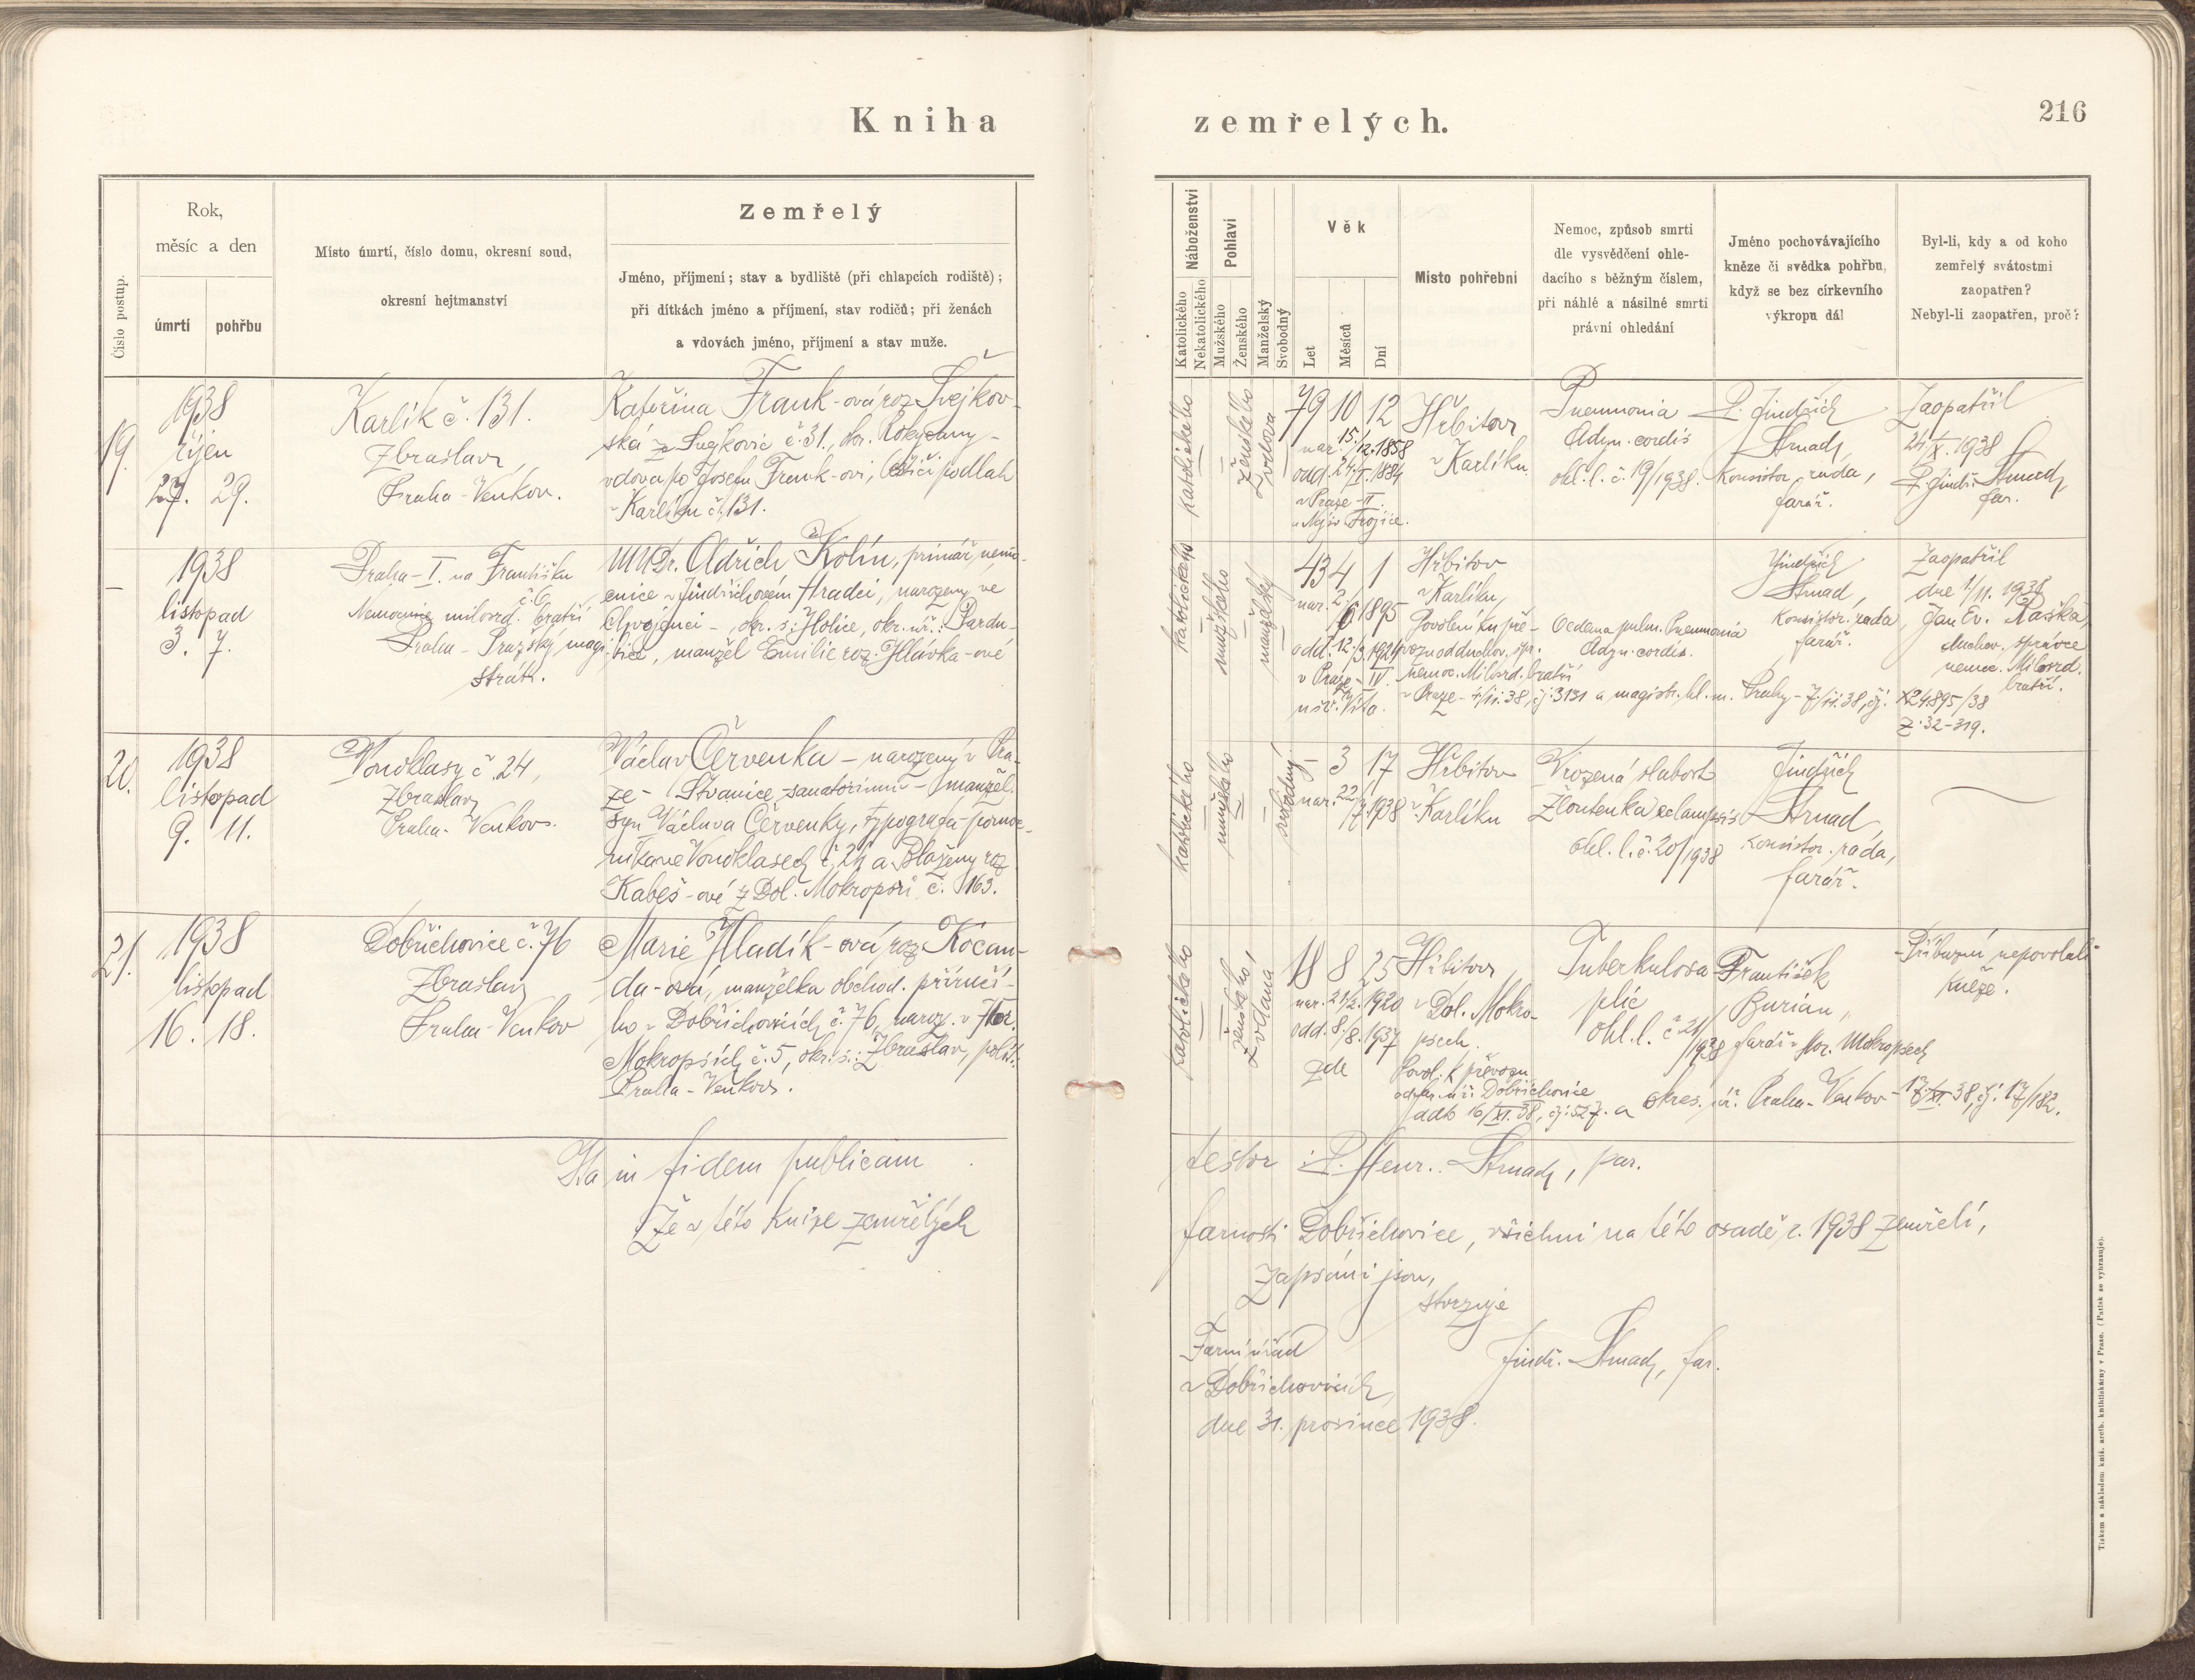 Kniha zemřelých.
216
Číslo postup.
Rok,
měsíc a den
úmrtí
pohřbu
Místo úmrtí, číslo domu, okresní soud,
okresní hejtmanství
Zemřelý
Jméno, příjmení; stav a bydliště (při chlapcích rodiště);
při dítkách jméno a příjmení, stav rodičů; při ženách
a vdovách jméno, příjmení a stav muže.
Náboženství
Katolického
Nekatolického
Pohlaví
Mužského
Ženského
Manželský
Svobodný
Věk
Let
Měsíců
Dní
Místo pohřební
Nemoc, způsob smrti
dle vysvědčení ohle-
dacího s běžným číslem,
při náhlé a násilné smrti
právní ohledání
Jméno pochovávajícího
kněze či svědka pohřbu,
když se bez církevního
výkropu dál
Byl-li, kdy a od koho
zemřelý svátostmi
zaopatřen?
Nebyl-li zaopatřen, proč?
19.
1938
říjen
27. 29.
Karlík č. 131.
Zbraslav,
Praha-Venkov.
Kateřina Frank-ová roz. Švejkov-
ská ze Svejkovic č. 31., okr. Rokycany -
vdova po Josefu Frank-ovi,
v Karlíku č. 131.
katolického
ženského
vdova
79 10 12
nar. 15./12. 1858
odd. 24./I. 1884
v Praze-II.
u Nejsv. Trojice.
Hřbitov
v Karlíku
Pneumonia
Adyn. cordis
ohl. l. č. 19/1938.
P. Jindřich
Strnad,
konsistor. rada,
farář.
Zaopatřil
24./X. 1938
P. Jindř. Strnad,
far.
–
1938
listopad
3. 7.
Praha-I. na Františku
č. 6
Nemocnice milosrd. bratří
Praha - Pražský magi-
strát.
MUDr. Oldřich Kolín, primář nemo-
cnice v Jindřichovém Hradci, narozený ve
Chvojenci -, okr. s.: Holice, okr. úř.: Pardu-
bice, manžel Emilie roz. Hlávka-ové
katolického
mužského
manželský
43 4 1
nar. 2./6. 1895
odd. 12./3. 1921
v Praze-IV.
u sv. Víta.
Hřbitov
v Karlíku,
Povolení ku pře-
vozu od duchov. spr.
nemoc. Milosrd. bratří
v Praze - 4/11. 38, čj. 3131 a magistr. hl. m. Prahy - 7/11. 38, čj.: X24895/38
Z: 32-319.
Oedema pulm. Pneumonia
Adyn. cordis.
Jindřich
Strnad,
konsistor. rada,
farář.
Zaopatřil
dne 1/11. 1938
Jan Ev. Raška,
duchov. správce
nemoc. Milosrd.
bratří.
20.
1938
listopad
9. 11.
Vonoklasy č. 24,
Zbraslav,
Praha-Venkov.
Václav Červenka - narozený v Pra-
ze - Štvanice-sanatorium - manžel.
syn Václava Červenky, typografa-pomoc-
níka ve Vonoklasech č. 24 a Blaženy roz.
Kabeš-ové z Dol. Mokropsů č. 163.
katolického
mužského
svobodný
– 3 17
nar. 22/7. 1938
Hřbitov
v Karlíku
Vrozená slabost
Žloutenka eclampsis
ohl. l. č. 20/1938
Jindřich
Strnad,
konsistor. rada,
farář.
21.
1938
listopad
16. 18.
Dobřichovice č. 76
Zbraslav,
Praha-Venkov
Marie Hladík-ová roz. Kocan-
da-ová, manželka obchod. příručí-
ho v Dobřichovicích č. 76, naroz. v Hor.
Mokropsích č. 5, okr. s.: Zbraslav, polit.:
Praha-Venkov.
katolického
ženského,
vdaná
18 8 25
nar. 21/2. 1920
odd. 8./8. 1937
zde
Hřbitov
v Dol. Mokro-
psech.
Povol. k převozu
od úř. Dobřichovice
ddto 16/XI. 38, čj: 527. a okres. úř. Praha-Venkov - 17/XI. 38, čj: 17/182.
Tuberkulosa
plic
ohl. l. č. 21/1938
František
Burian,
farář v Hor. Mokropsech
Příbuzní nepovolali
kněze.
Ita in fidem publicam testor: P. Henr. Strnad, par.
Že v této knize zemřelých farnosti Dobřichovice, všichni na této osadě r. 1938 zemřelí,
zapsáni jsou,
stvrzuje
Farní úřad
v Dobřichovicích,
dne 31. prosince 1938.
Jindř. Strnad, far.
Tiskem a nákladem kníž. arcib. knihtiskárny v Praze. (Patisk se vyhrazuje).